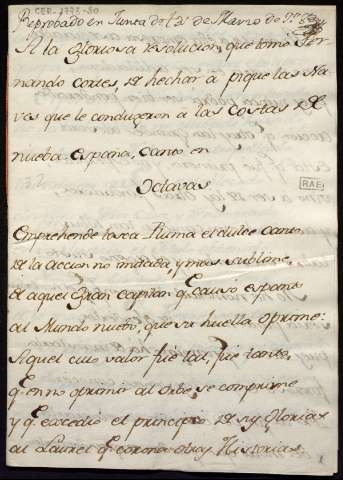 CER-1778-50
Reprobado en Junta de 12 de Marzo de
A la Gloriosa resolucion, que tomó Fer-
nando cortes, de hechar a pique las Na-
ves que le conduxeron a las costas de
nueba España, canto en
Octavas
RAE
Emprehende tosca Pluma el dulce canto
de la accion no imitada, y mas sublime,
de aquel Gran capitan q. causó espanto
al Mundo nuebo, que su huella oprime:
Aquel cuio valor fué tal, fué tanto,
q. en no oprimir al Orbe, se comprime
y q. Excedió el principio de sus Glorias
al Laurel q. corona otras Historias